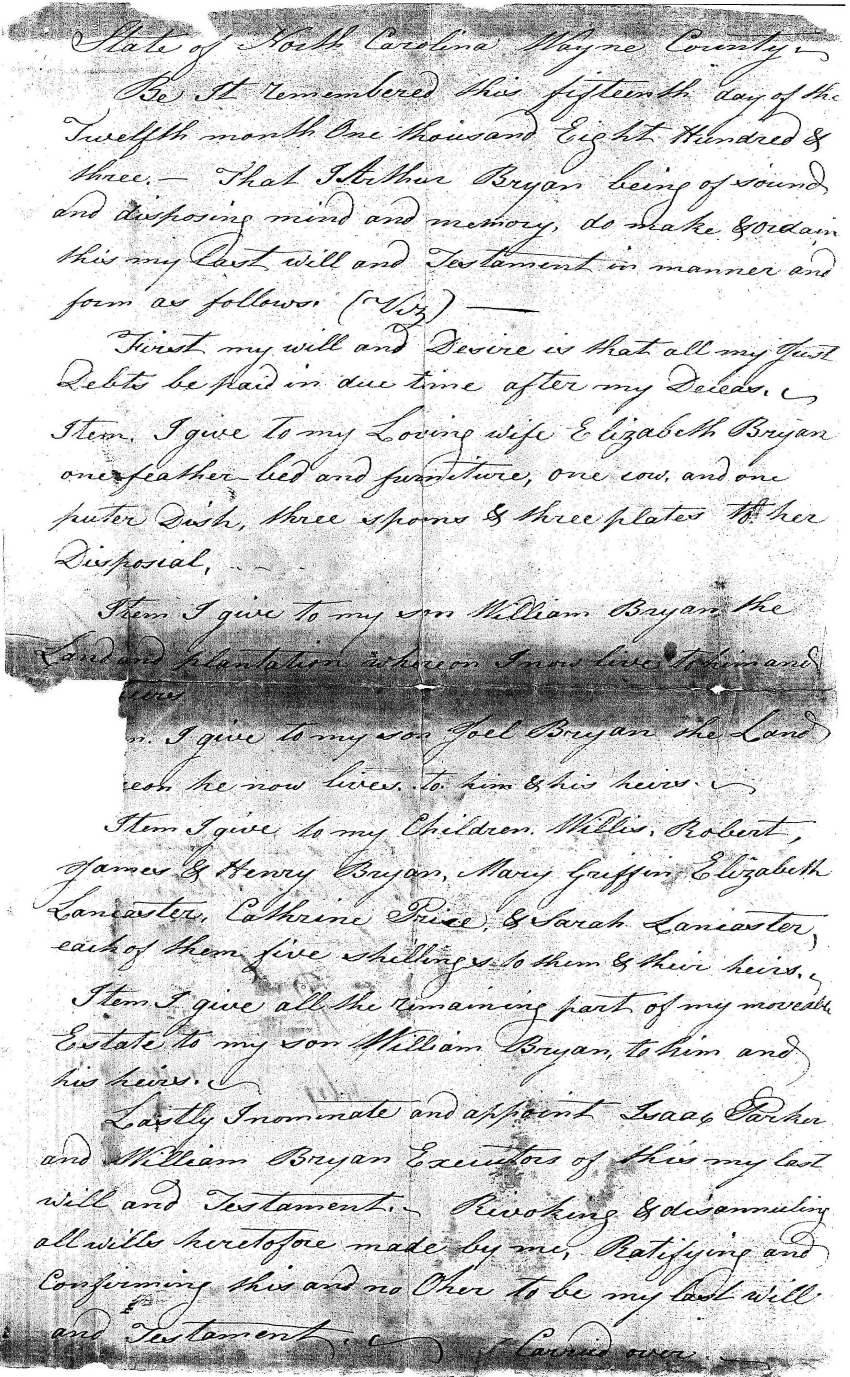 State of North Carolina Wayne County
Be It remembered this fifteenth day of the
Twelfth month One thousand Eight Hundred &
three. - That I Arthur Bryan being of sound
and disposing mind and memory, do make & ordain
this my last will and Testament in manner and
form as follows. (Viz) —
First my will and Desire is that all my Just
Debts be paid in due time after my Deceas.
Item. I give to my Loving wife Elizabeth Bryan
one feather bed and furniture, one cow, and one
puter Dish, three spoons & three plates to her
Disposial,
Item I give to my son William Bryan the
Land and plantation whereon I now live to him and
eirs
m. I give to my son Joel Bryan the Land
eon he now lives. to him & his heirs.
Item I give to my Children. Willis, Robert,
James & Henry Bryan, Mary Griffin, Elizabeth
Lancaster, Cathrine Price, & Sarah Lancaster,
each of them five shillings to them & their heirs.
Item I give all the remaining part of my moveable
Estate to my son William Bryan, to him and
his heirs.
Lastly I nominate and appoint Isaac Parker
and William Bryan Executors of this my last
will and Testament. - Rivoking & disannuling
all wills heretofore made by me, Ratifying and
Confirming this and no Oher to be my last will
and Testament. Carried over